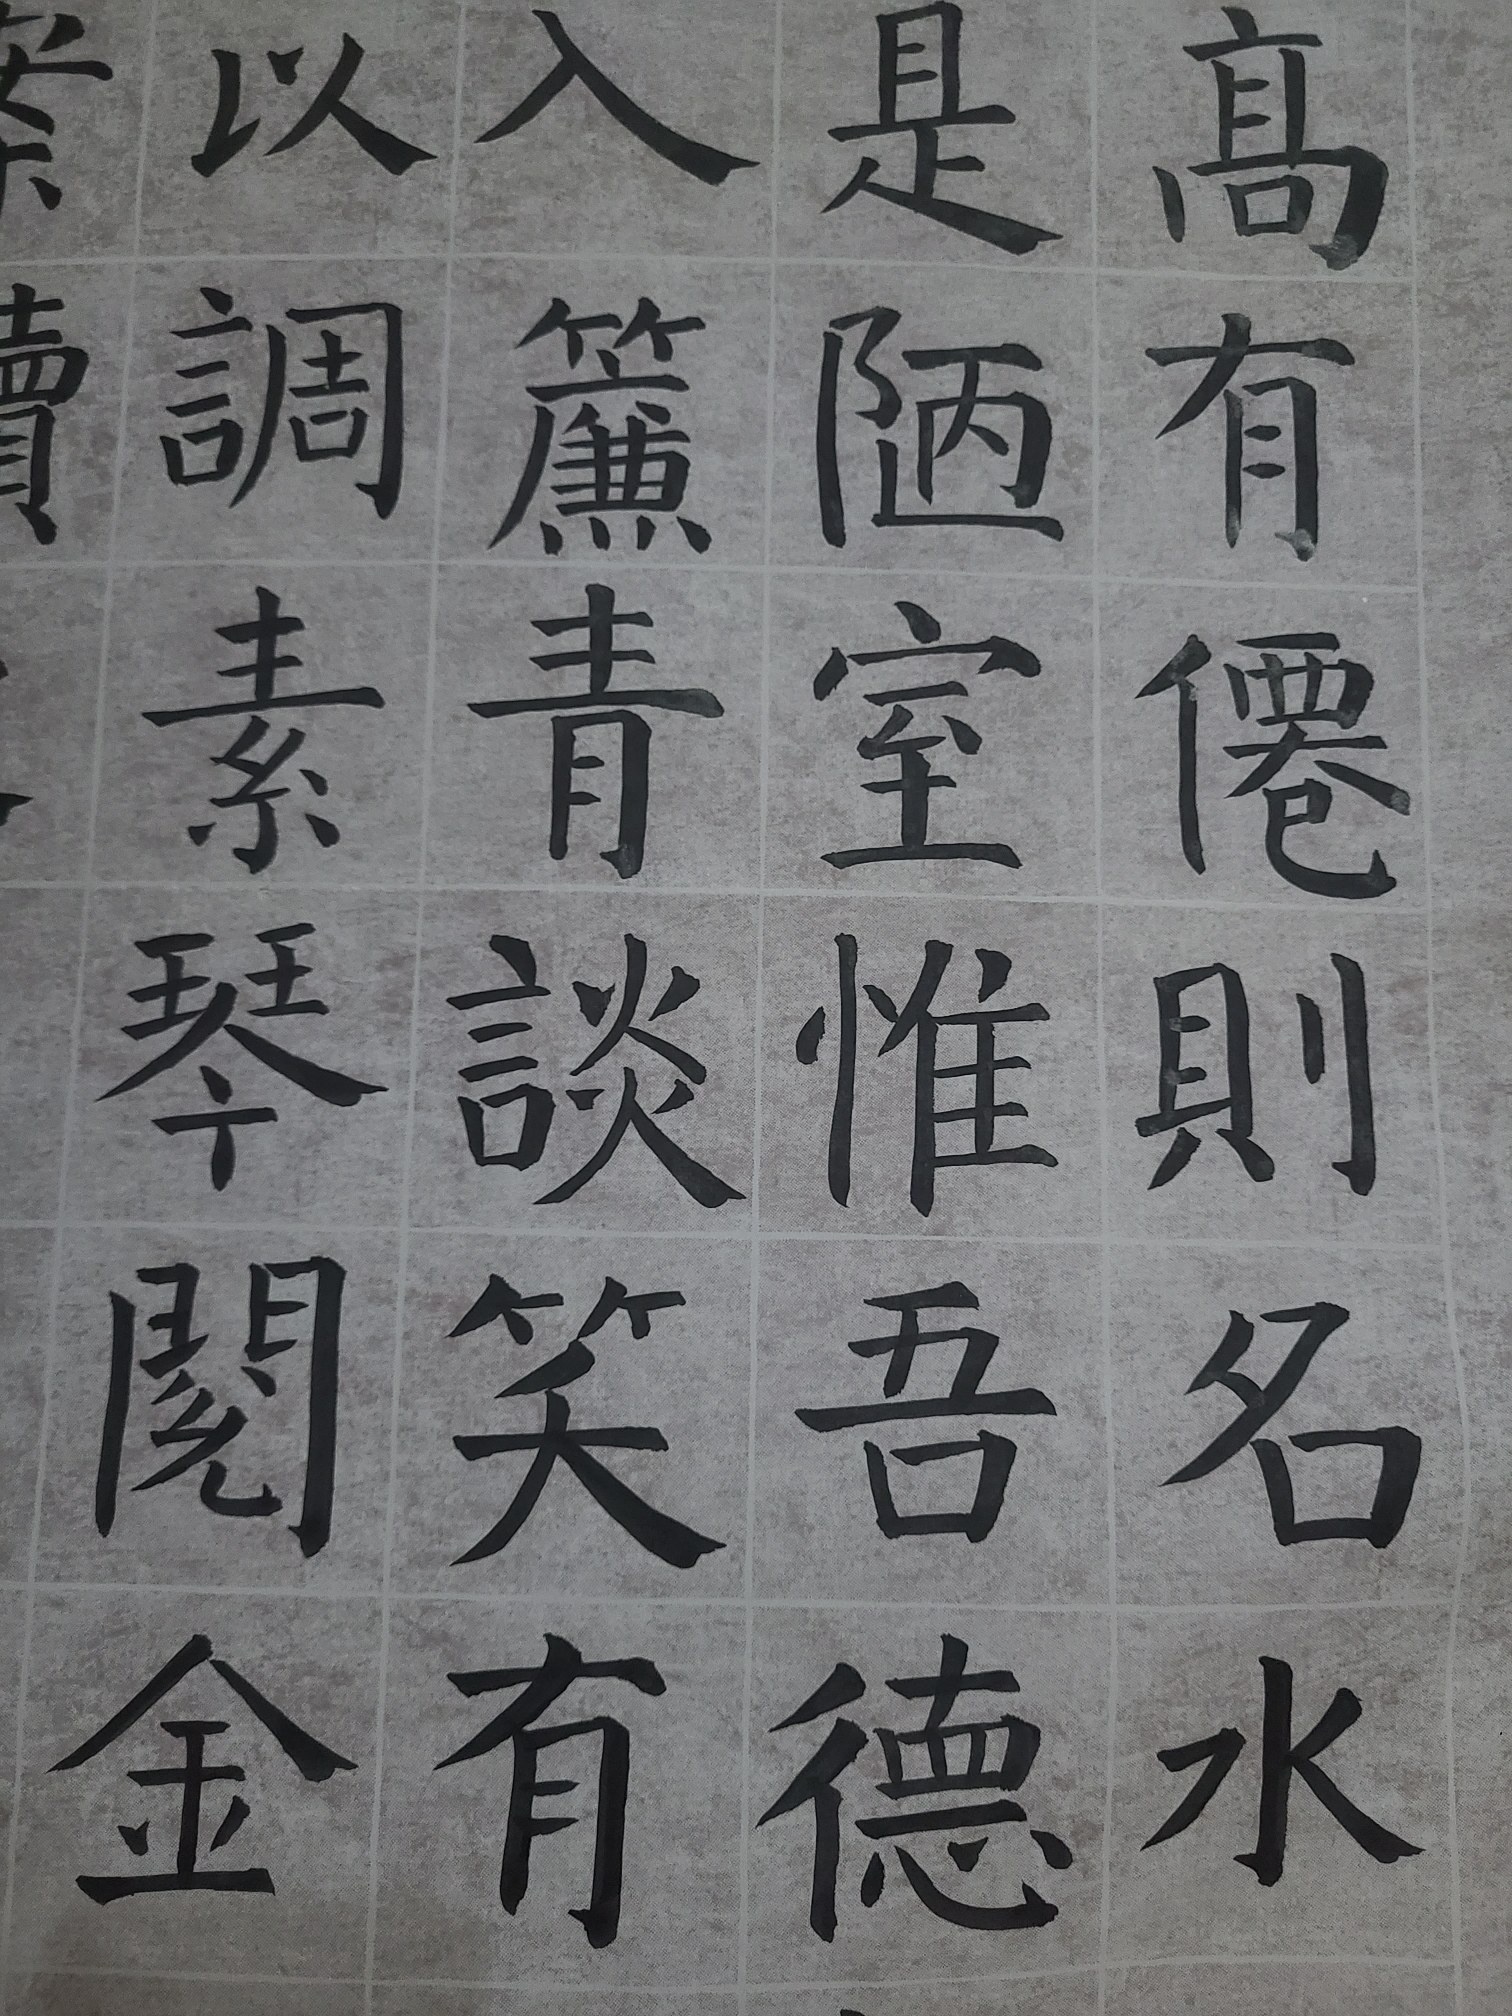 髙有僊則名水
是陋室惟吾德
入簾青談笑有
以調素琴閱金